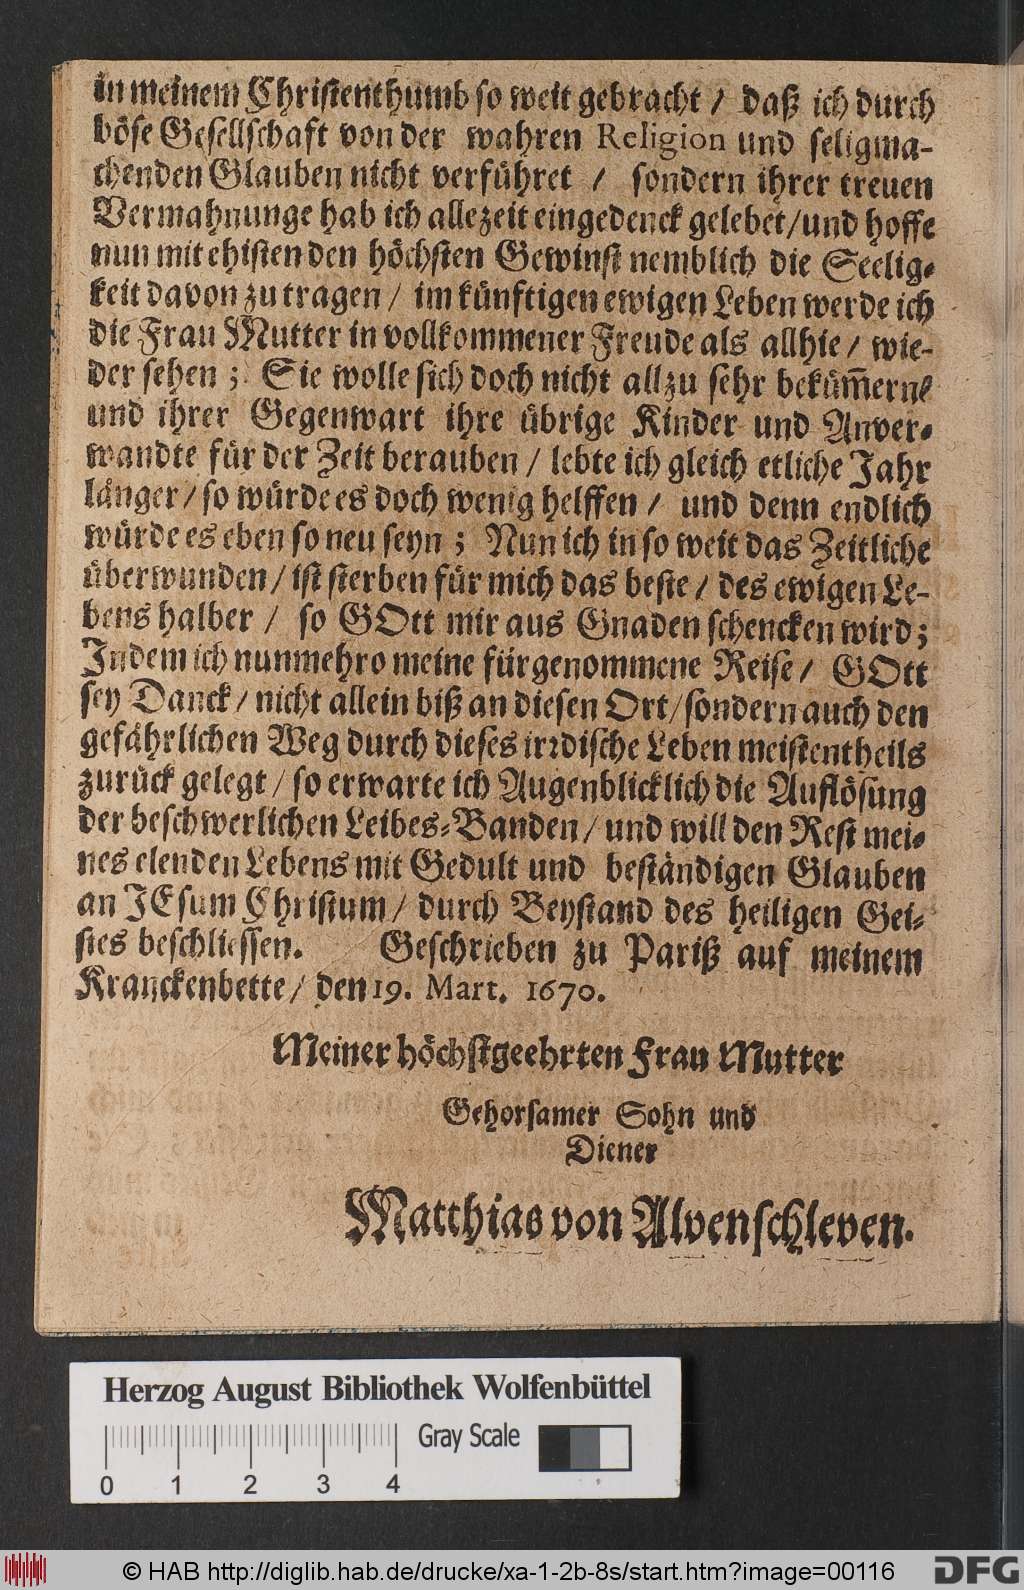 in meinem Christenthumb so weit gebracht / daß ich durch
böse Gesellschaft von der wahren Religion und seligma-
chenden Glauben nicht verführet / sondern ihrer treuen
Vermahnunge hab ich allezeit eingedenck gelebet / und hoffe
nun mit ehisten den höchsten Gewinst nemblich die Seelig-
keit davon zu tragen / im künfftigen ewigen Leben werde ich
die Frau Mutter in vollkommener Freude als allhie / wie-
der sehen ; Sie wolle sich doch nicht allzu sehr bekümern /
und ihrer Gegenwart ihre übrige Kinder und Anver-
wandte für der Zeit berauben / lebte ich gleich etliche Jahr
länger / so würde es doch wenig helffen / und denn endlich
würde es eben so neu seyn ; Nun ich in so weit das Zeitliche
überwunden / ist sterben für mich das beste / des ewigen Le-
bens halber / so GOtt mir aus Gnaden schencken wird ;
Indem ich nunmehro meine fürgenommene Reise / GOtt
sey Danck / nicht allein biß an diesen Ort / sondern auch den
gefährlichen Weg durch dieses irrdische Leben meistentheils
zurück gelegt / so erwarte ich Augenblicklich die Auflösung
der beschwerlichen Leibes-Banden / und will den Rest mei-
nes elenden Lebens mit Gedult und beständigen Glauben
an JEsum Christum / durch Beystand des heiligen Gei-
stes beschliessen. Geschrieben zu Pariß auf meinem
Kranckenbette / den 19. Mart. 1670.
Meiner höchstgeehrten Frau Mutter
Gehorsamer Sohn und
Diener
Matthias von Alvenschleven.
Herzog August Bibliothek Wolfenbüttel
Gray Scale
0 1 2 3 4
© HAB http://diglib.hab.de/drucke/xa-1-2b-8s/start.htm?image=00116
DFG